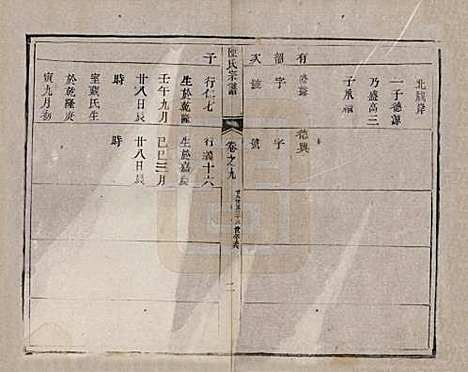 北關岸
一子德謀
乃盛高三
子承福
有 德謀 德興
韶 字 字
次 號 號
陳氏宗譜
卷之九
二
子 行仁七 行義十六
生於乾隆 生於嘉慶
壬午九月 己巳三月
廿八日辰 廿八日辰
時 時
室嚴氏生
於乾隆庚
寅九月初